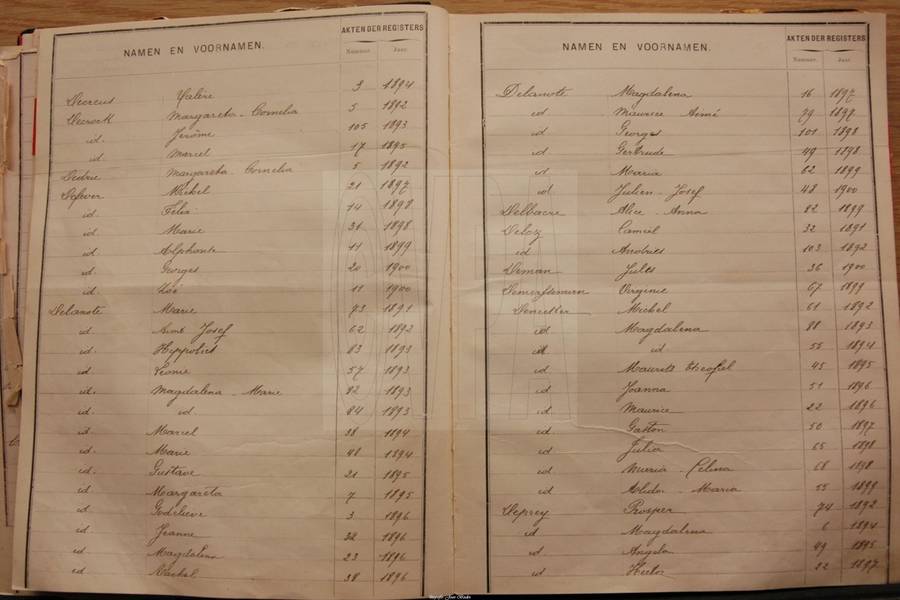 AKTEN DER REGISTERS
NAMEN EN VOORNAMEN.
Nummer. Jaar.
Decreus Valère 3 1894
Decrock Margareta-Cornelia 5 1892
id. Jerôme 105 1893
id. Marcel 17 1895
Dedrie Margareta-Cornelia 5 1892
Defever Michel 21 1897
id. Felix 14 1898
id. Marie 31 1898
id. Alphonse 11 1899
id. Georges 20 1900
id. Zoé 11 1900
Delanote Marie 73 1891
id. Aimé Josef 62 1892
id. Hippoliet 63 1893
id. Leonie 57 1893
id. Magdalena-Marie 82 1893
id. id 84 1893
id. Marcel 38 1894
id. Marie 48 1894
id. Gustave 21 1895
id. Margareta 7 1895
id. Godelieve 3 1896
id. Jeanne 32 1896
id. Magdalena 23 1896
id. Michel 38 1896
AKTEN DER REGISTERS
NAMEN EN VOORNAMEN.
Nummer. Jaar.
Delanote Magdalena 16 1897
id Maurice Aimé 79 1897
id Georges 101 1898
id Gertrude 49 1898
id Maria 62 1899
id Julien-Josef 48 1900
Delbaere Alice-Anna 82 1899
Camiel 32 1891
id Andries 103 1892
Deman Jules 36 1900
Virginie 67 1899
Michel 61 1892
id Magdalena 88 1893
id id 55 1894
id Maurits 45 1895
id Joanna 51 1896
id Maurice 22 1896
id Gaston 50 1897
id. Julia 65 1898
id Maria-Celina 68 1898
id Alidor-Maria 55 1899
Deprey Prosper 74 1892
id Magdalena 6 1894
id Angela 49 1895
id Hector 22 1897